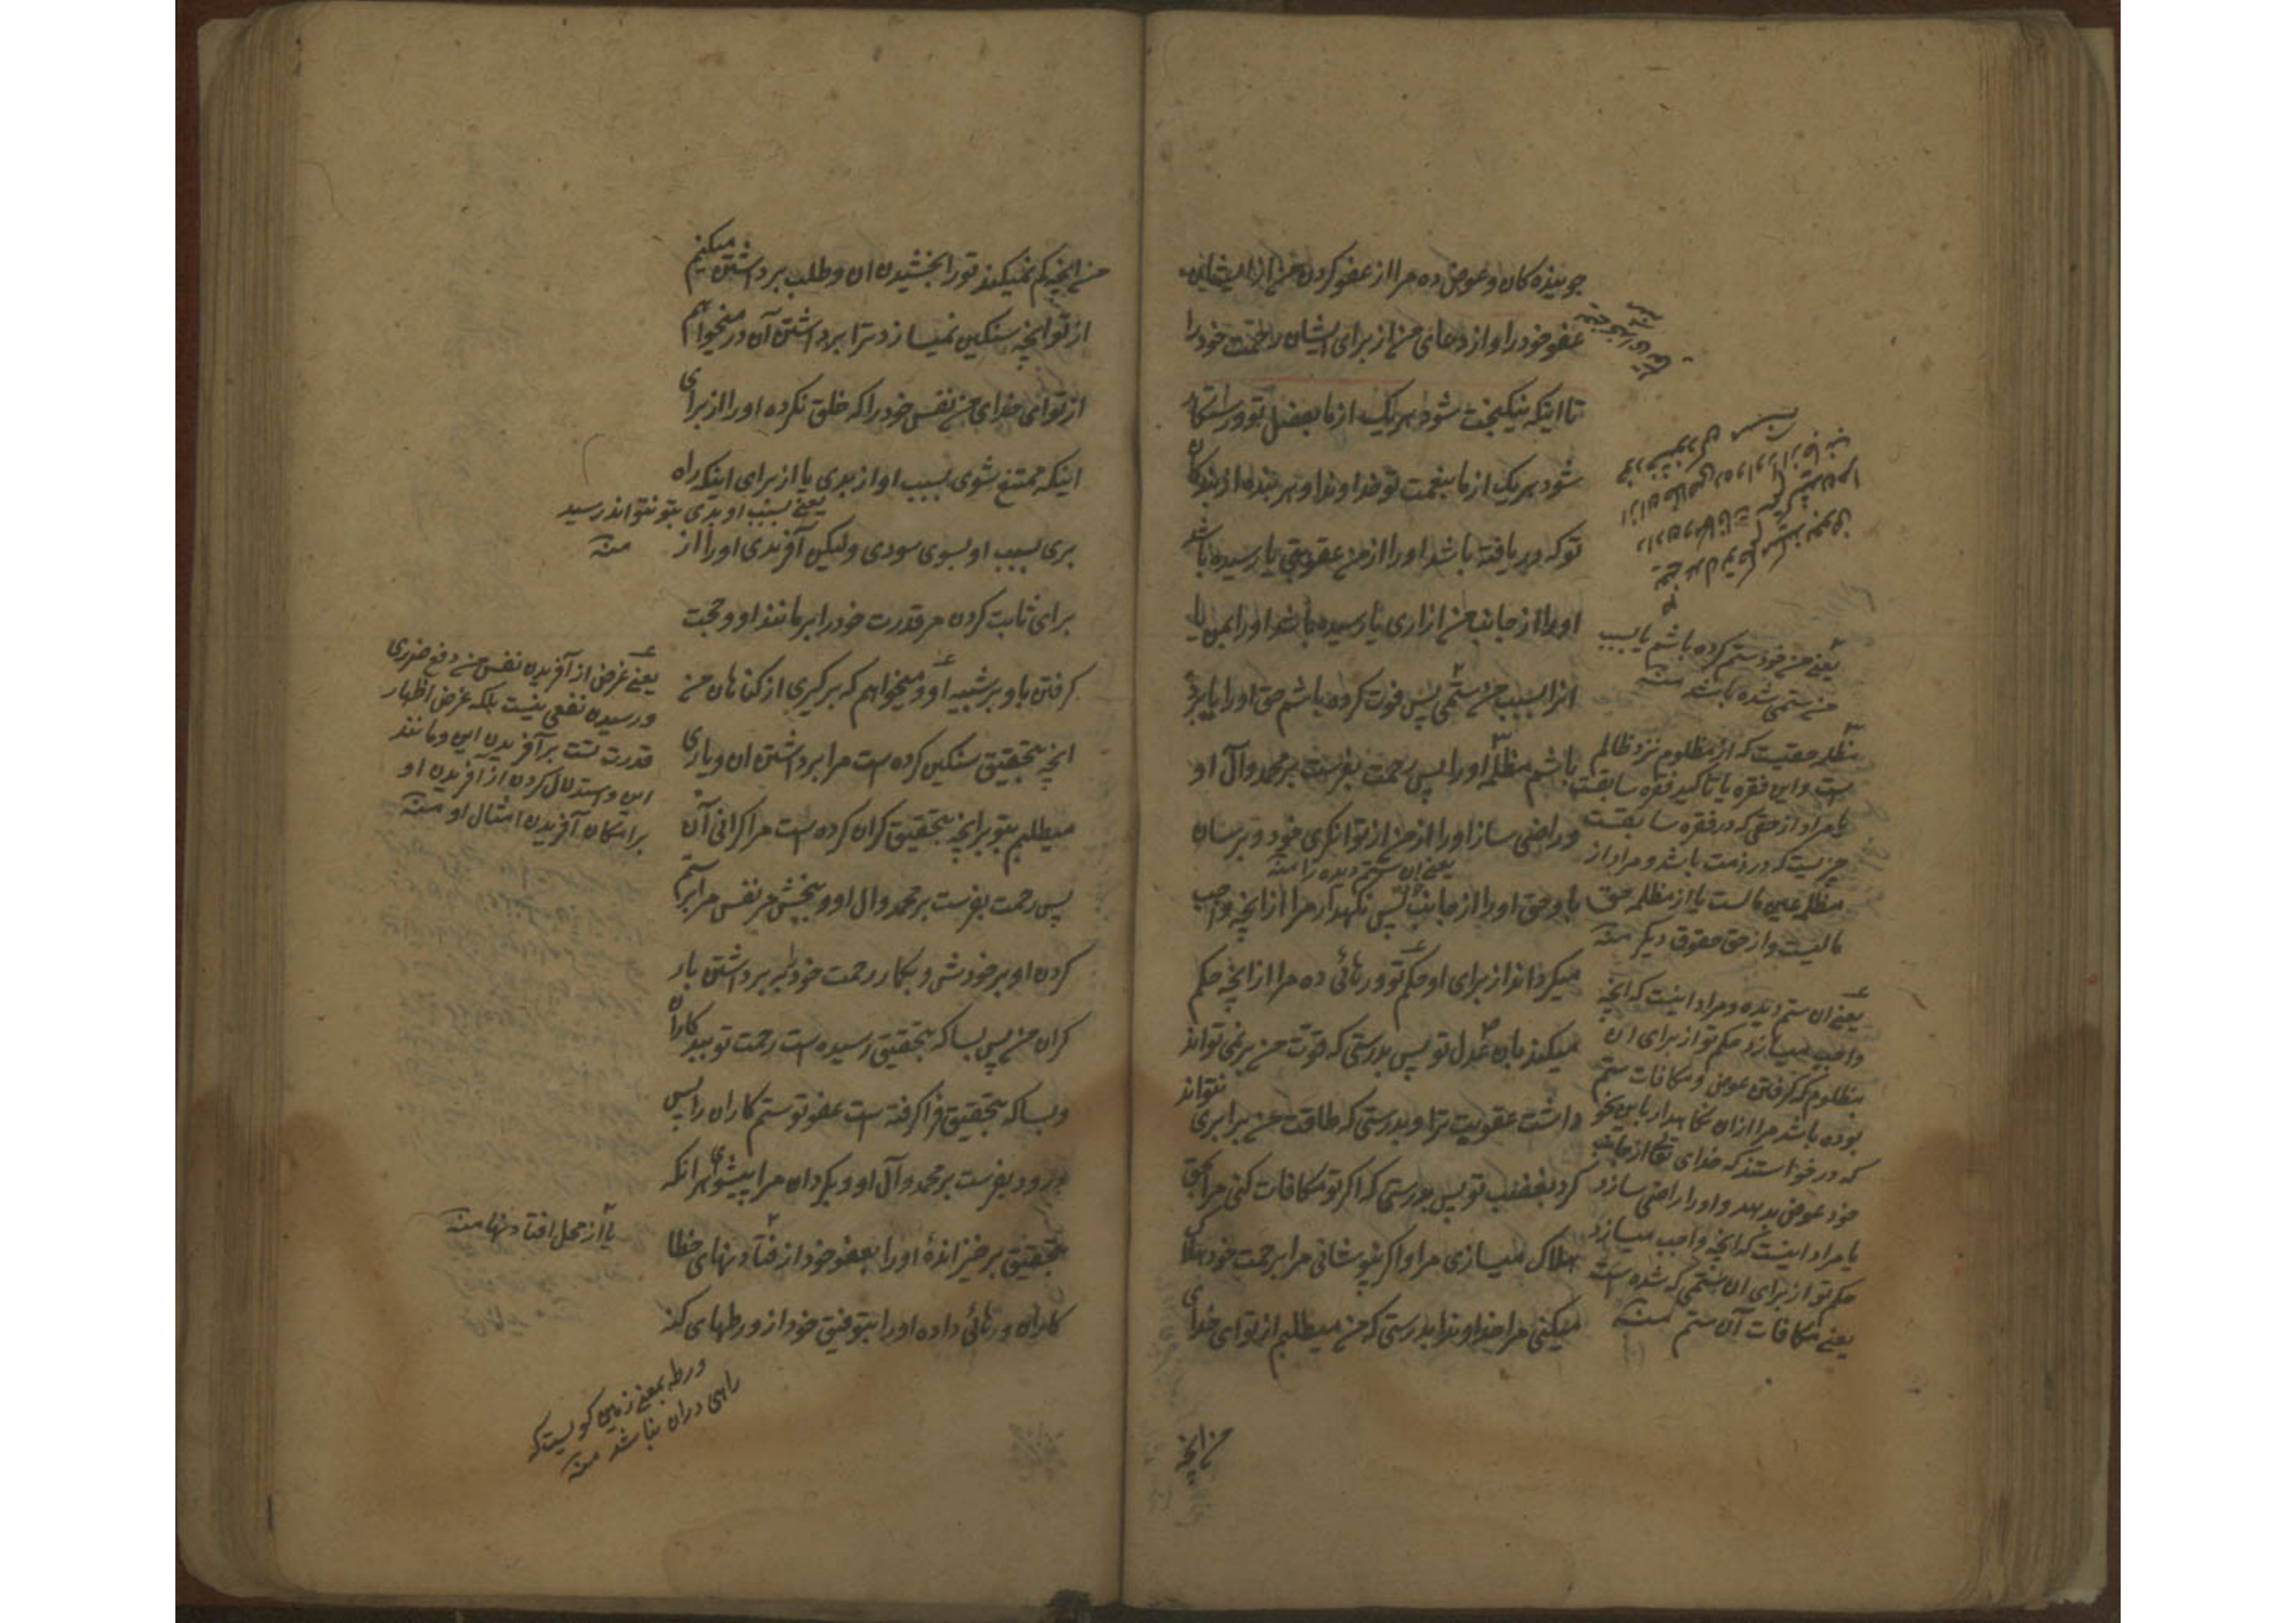 جوینده کان و عوض ده مرا از عفو کردن من از ایشان
عفو خود را و از دعای من از برای ایشان رحمت خود را
تا اینکه نیکبخت شود هر یک از ما بفضل تو و رستکار
شود هر یک از ما بنعمت تو خداوندا و هر بنده از بندکان
تو که دریافته باشد او را از من عقوبتی یا رسیده باشد
او را از جانب من ازاری یا رسیده باشد او را بمن یا
انرا بسبب من ستمی پس فوت کرده باشم حق او را یا برده
باشم مظلمه او را پس رحمت بفرست بر محمد وآل او
و راضی ساز او را از من از توانکری خود و برسان
یعنے ان ستم دیده را منه
باو حق او را از جانب پس نکهدار مرا از انچه واجب
میکرداند از برای او حکم تو و رهائی ده مرا از انچه حکم
میکند بان عدل تو پس بدرستی که قوت من بر نمی تواند
داشت عقوبت ترا و بدرستی که طاقت من برابری نتواند
کرد بغضب تو پس بدرستی که اکر تو مکافات کنی مرا بحق
هلاک میسازی مرا و اکر نپوشانی مرا برحمت خود هلاک
میکنی مرا خداوندا بدرستی که من میطلبم از تو ای خدای
من انچه
یعنے من خود ستم کرده باشم یا بسبب
من ستمی شده باشد منه
مظلمه حقیست که از مظلوم نزد ظالم
است و این فقره یا تاکید فقره سابقست
یا مراد از حقی که در فقره سابقست
چیزیست که در ذمت باشد و مراد از
مظلمه عین مالست یا از مظلمه حق
مالیست و از حق حقوق دیکر منه
یعنے ان ستم دیده و مراد اینست که انچه
واجب میسازد حکم تو از برای ان
مظلوم که کرفتن عوض و مکافات ستم
بوده باشد مرا از ان نکاهدار باین نحو
که در خواستند که خدای تعالی از جانب
خود عوض بدهد و او را راضی سازد
یا مراد اینست که انچه واجب میسازد
حکم تو از برای ان ستمی که شده است
یعنے مکافات آن ستم منه
من انچه کم نمیکند تو را بخشیدن ان و طلب برداشتن میکنم
از تو انچه سنکین نمیسازد ترا برداشتن آن در میخواهم
از تو ای خدای من نفس خود را که خلق نکرده او را از برای
اینکه ممتنع شوی بسبب او از بدی یا از برای اینکه راه
یعنے بسبب او بدی بتو نتواند رسید
منه
بری بسبب او بسوی سودی ولیکن آفریدی او را از
برای ثابت کردن مر قدرت خود را بر مانند او و حجت
کرفتن باو بر شبیه او و میخواهم که برکیری از کناهان من
انچه بتحقیق سنکین کرده است مرا برداشتن ان و یاری
میطلبم بتو بر انچه بتحقیق کران کرده است مرا کرانی آن
پس رحمت بفرست بر محمد وال او و ببخش مر نفس مرا بر ستم
کردن او بر خودش و بکمار رحمت خود را بر برداشتن بار
کران من پس بسا که بتحقیق رسیده است رحمت تو ببدکاران
و بسا که بتحقیق فرا کرفته است عفو تو ستم کاران را پس
درود بفرست بر محمد وآل او و بکردان مرا پیشوای هر انکه
بتحقیق برخیزانده او را بعفو خود از افتادنهای خطا
کاران و رهائی داده او را بتوفیق خود از ورطهای کنه
یعنے غرض از آفریدن نفس من دفع ضرری
و رسیدن نفعی نیست بلکه غرض اظهار
قدرت تست بر آفریدن این و مانند
این و استدلال کردن از آفریدن او
بر امکان آفریدن امثال او منه
یا از محل افتادنها منه
ورطه بمعنے زمین کویست که
راهی دران نباشد منه